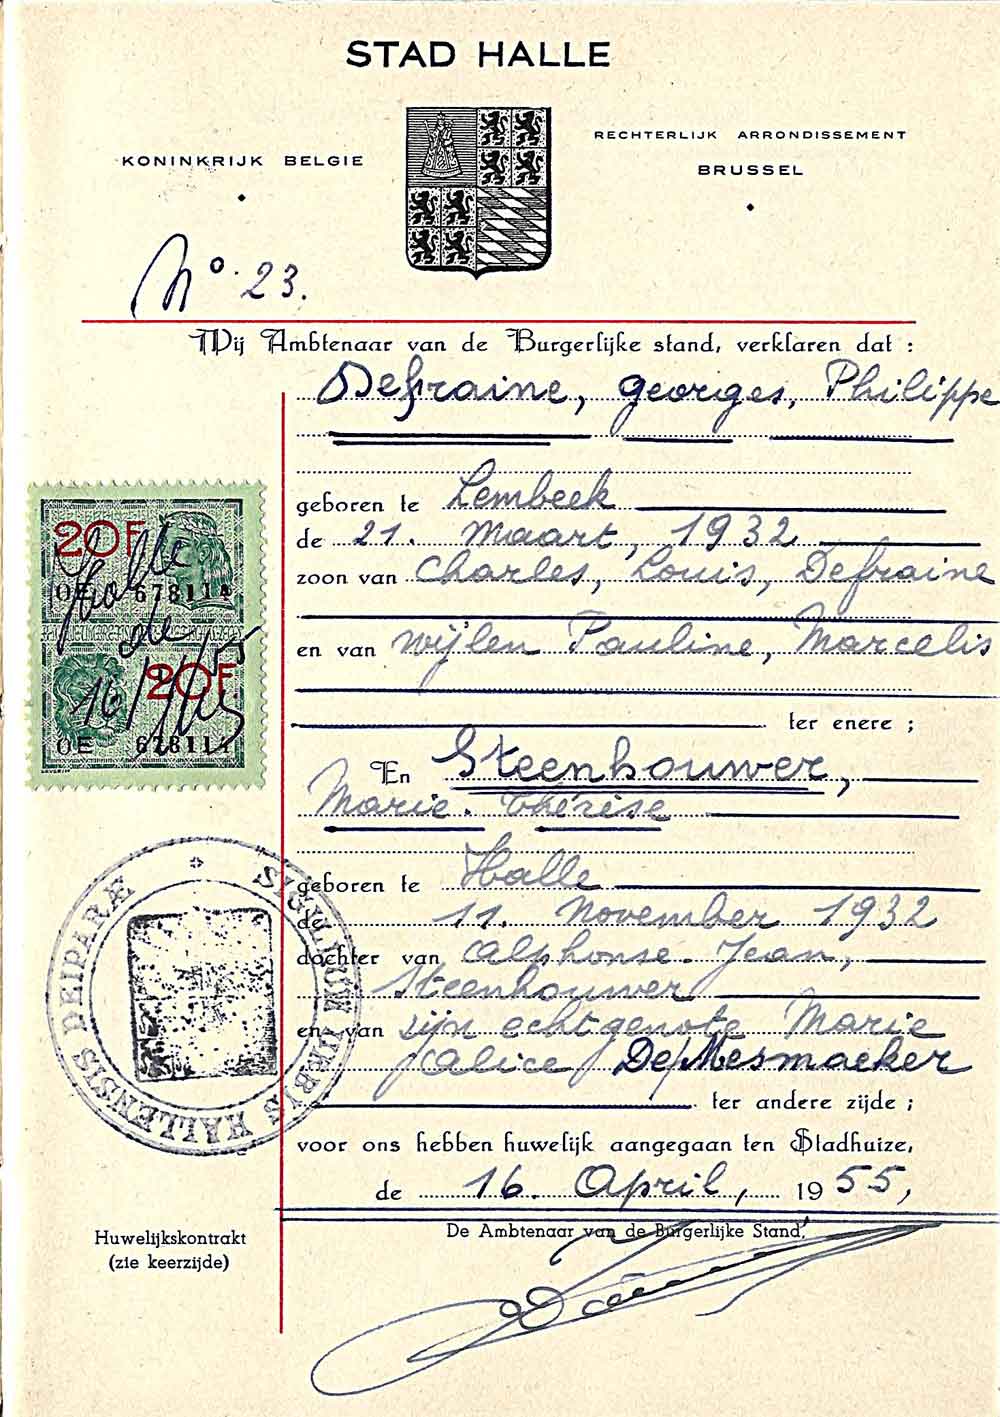 STAD HALLE
KONINKRIJK BELGIE
RECHTERLIJK ARRONDISSEMENT
BRUSSEL
No. 23.
Wij Ambtenaar van de Burgerlijke stand, verklaren dat :
Defraine, Georges, Philippe
geboren te Lembeek
de 21. Maart, 1932
zoon van Charles, Louis, Defraine
en van wijlen Pauline, Marcelis
ter enere ;
En Steenhouwer,
Marie. Thérèse
geboren te Halle
de 11. November 1932
dochter van Alphonse. Jean,
Steenhouwer
en van zijn echtgenote Marie
Alice De Mesmaeker
ter andere zijde ;
voor ons hebben huwelijk aangegaan ten Stadhuize,
de 16. April, 1955,
De Ambtenaar van de Burgerlijke Stand,
20F
Halle
OE 678114
de
16/4/55
20F
OE 678114
SIGILLUM URBIS HALLENSIS DEIPARÆ
Huwelijkskontrakt
(zie keerzijde)